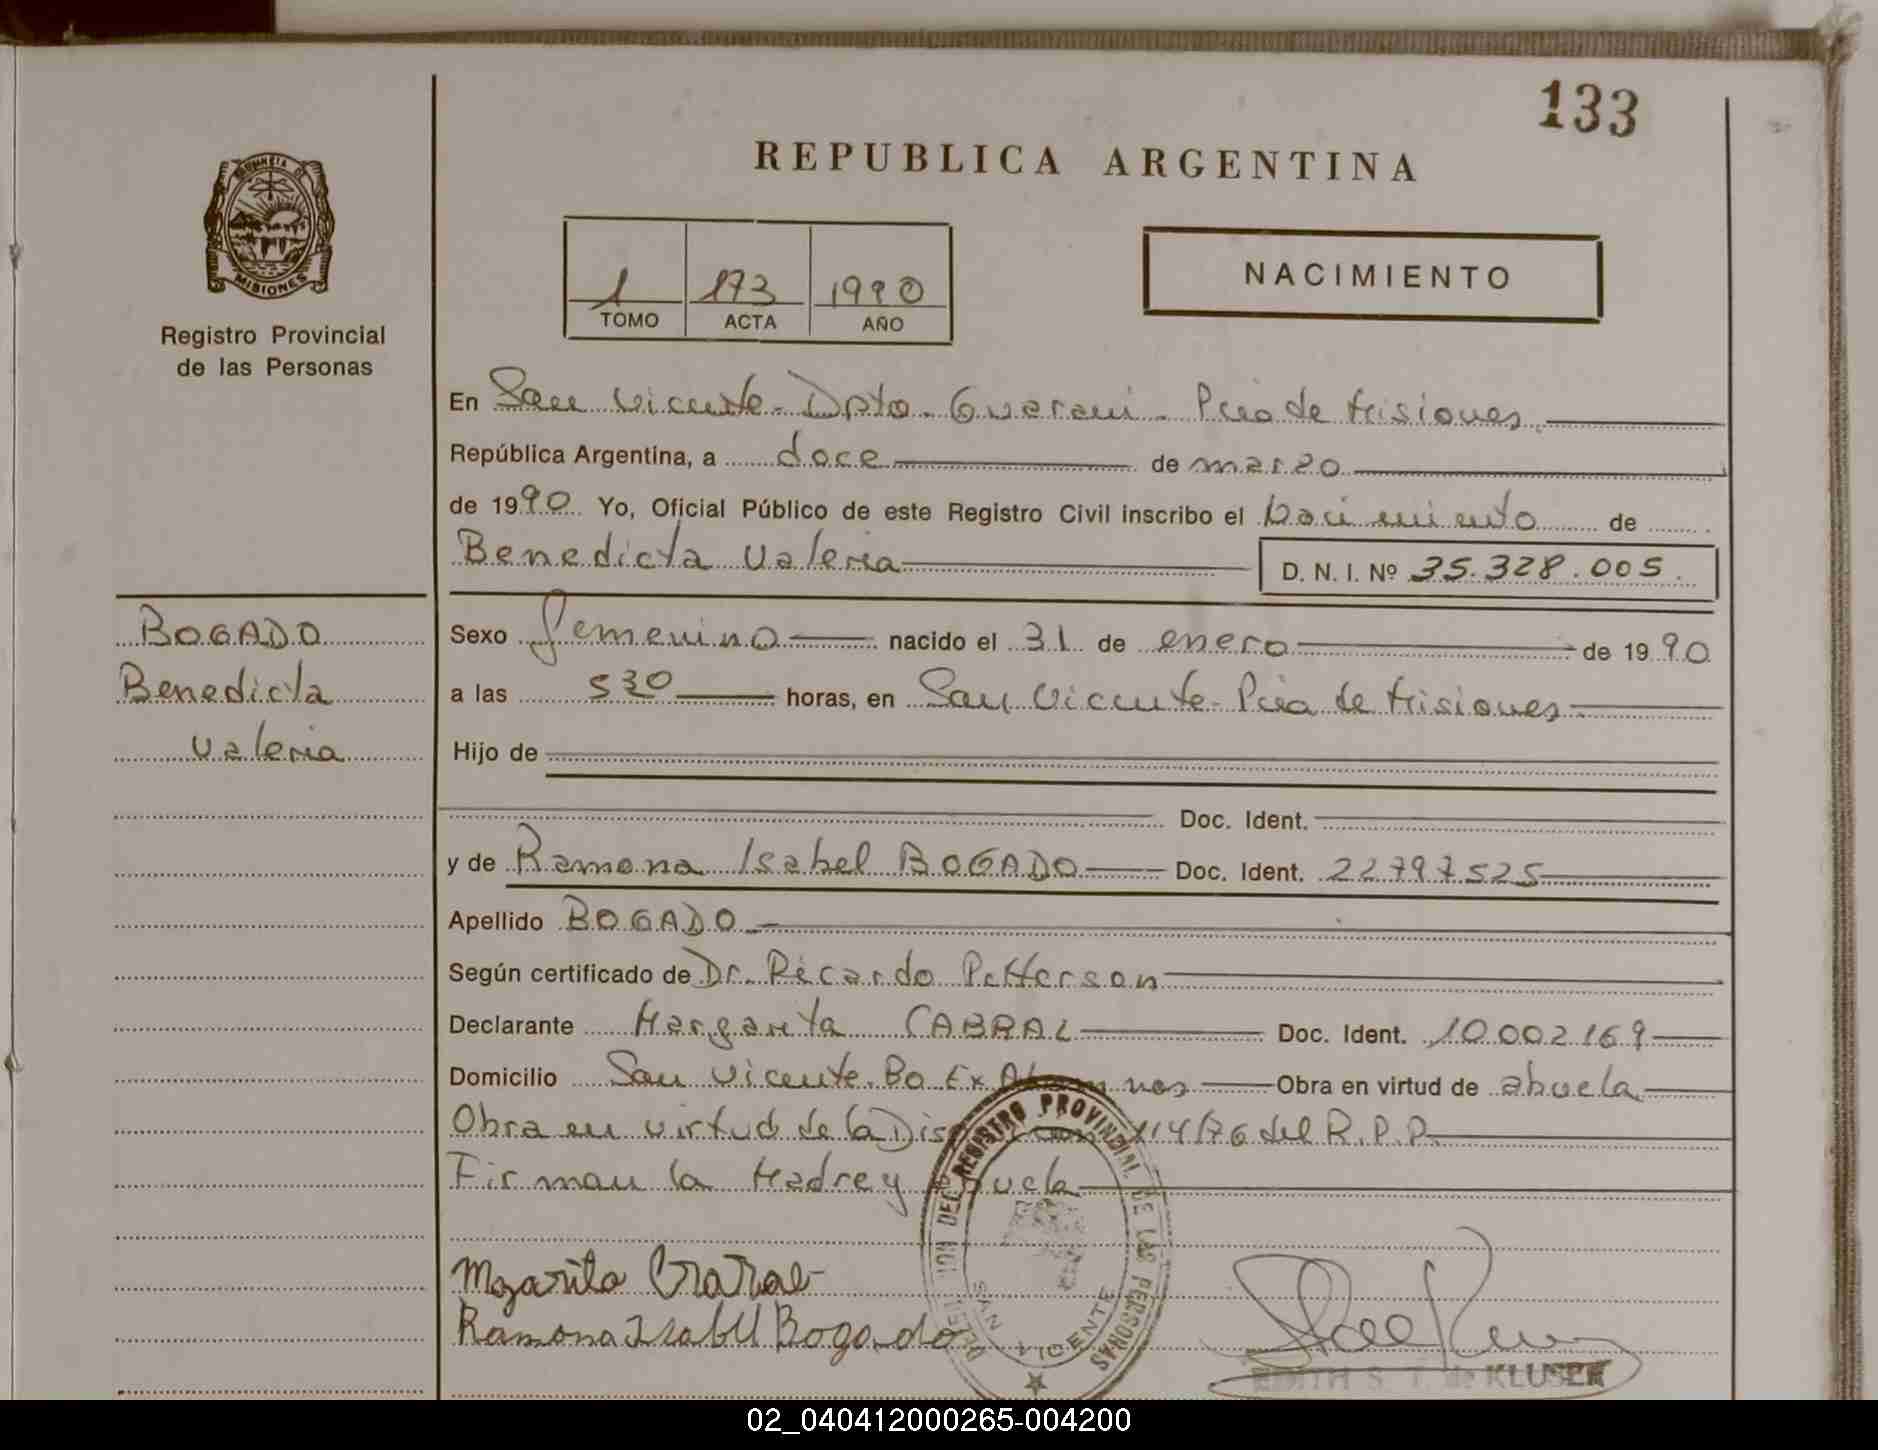 133
REPUBLICA ARGENTINA
PROVINCIA DE MISIONES
Registro Provincial
de las Personas
1 173 1990
TOMO ACTA AÑO
NACIMIENTO
En San Vicente - Dpto. Guarani - Pcia de Misiones.
República Argentina, a doce de marzo
de 1990 Yo, Oficial Público de este Registro Civil inscribo el Nacimiento de
Benedicta Valeria D. N. I. Nº 35.328.005
BOGADO
Benedicta
Valeria
Sexo femenino nacido el 31 de enero de 1990
a las 530 horas, en San Vicente - Pcia de Misiones
Hijo de
Doc. Ident.
y de Ramona Isabel BOGADO Doc. Ident. 22797525
Apellido BOGADO
Según certificado de Dr. Ricardo Petterson
Declarante Margarita CABRAL Doc. Ident. 10.002.169
Domicilio San Vicente. Bo Ex Obra en virtud de abuela
Obra en virtud de la 114/76 del R.P.P.
Firman la Madre y
Ramona Isabel Bogado
DELEGACION DEL REGISTRO PROVINCIAL DE LAS PERSONAS
SAN VICENTE
EDITH S. T. de KLUSER
02_040412000265-004200